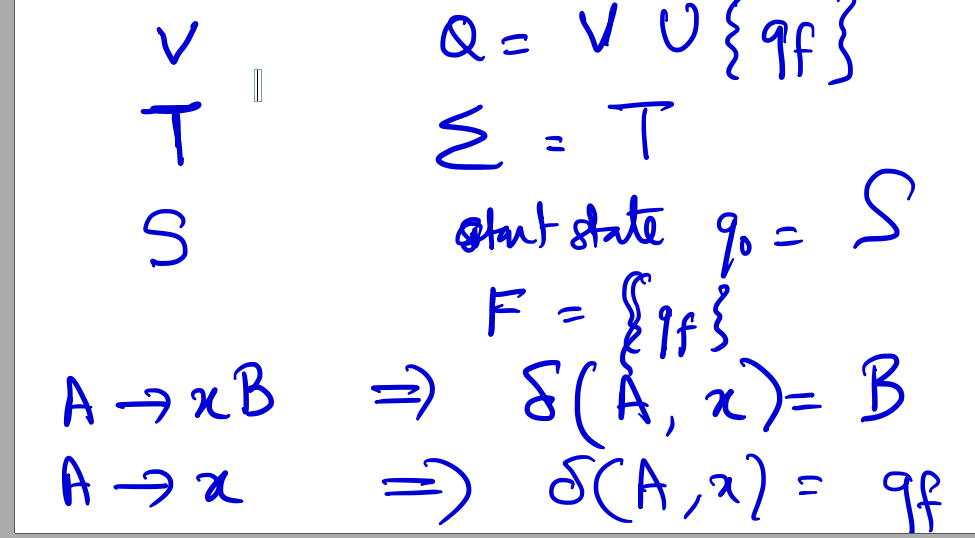 V Q = V ∪ {qf}
T Σ = T
S start state q₀ = S
F = {qf}
A → xB ⇒ δ(A, x) = B
A → x ⇒ δ(A, x) = qf